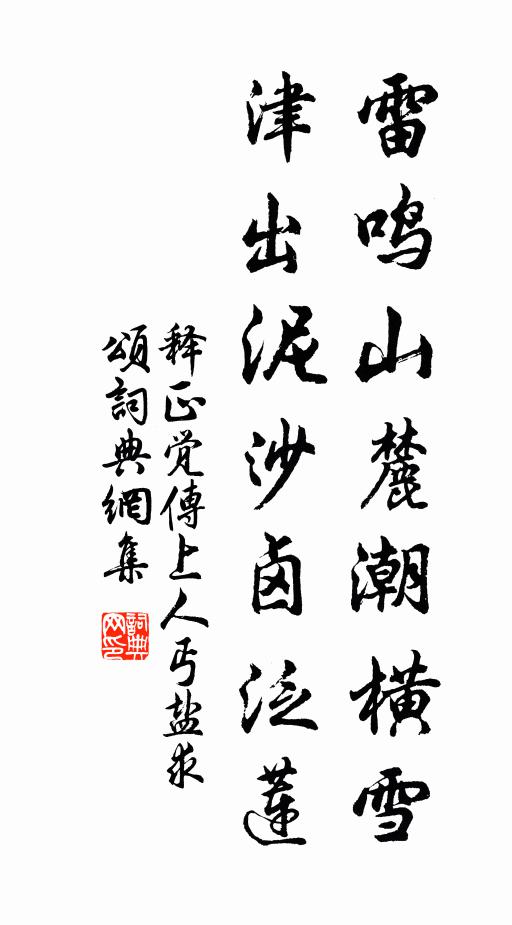 雷鸣山麓潮横雪
津出泥沙卤泛莲
释正觉傳上人丐盐求
頌詞典網集
詞典网印